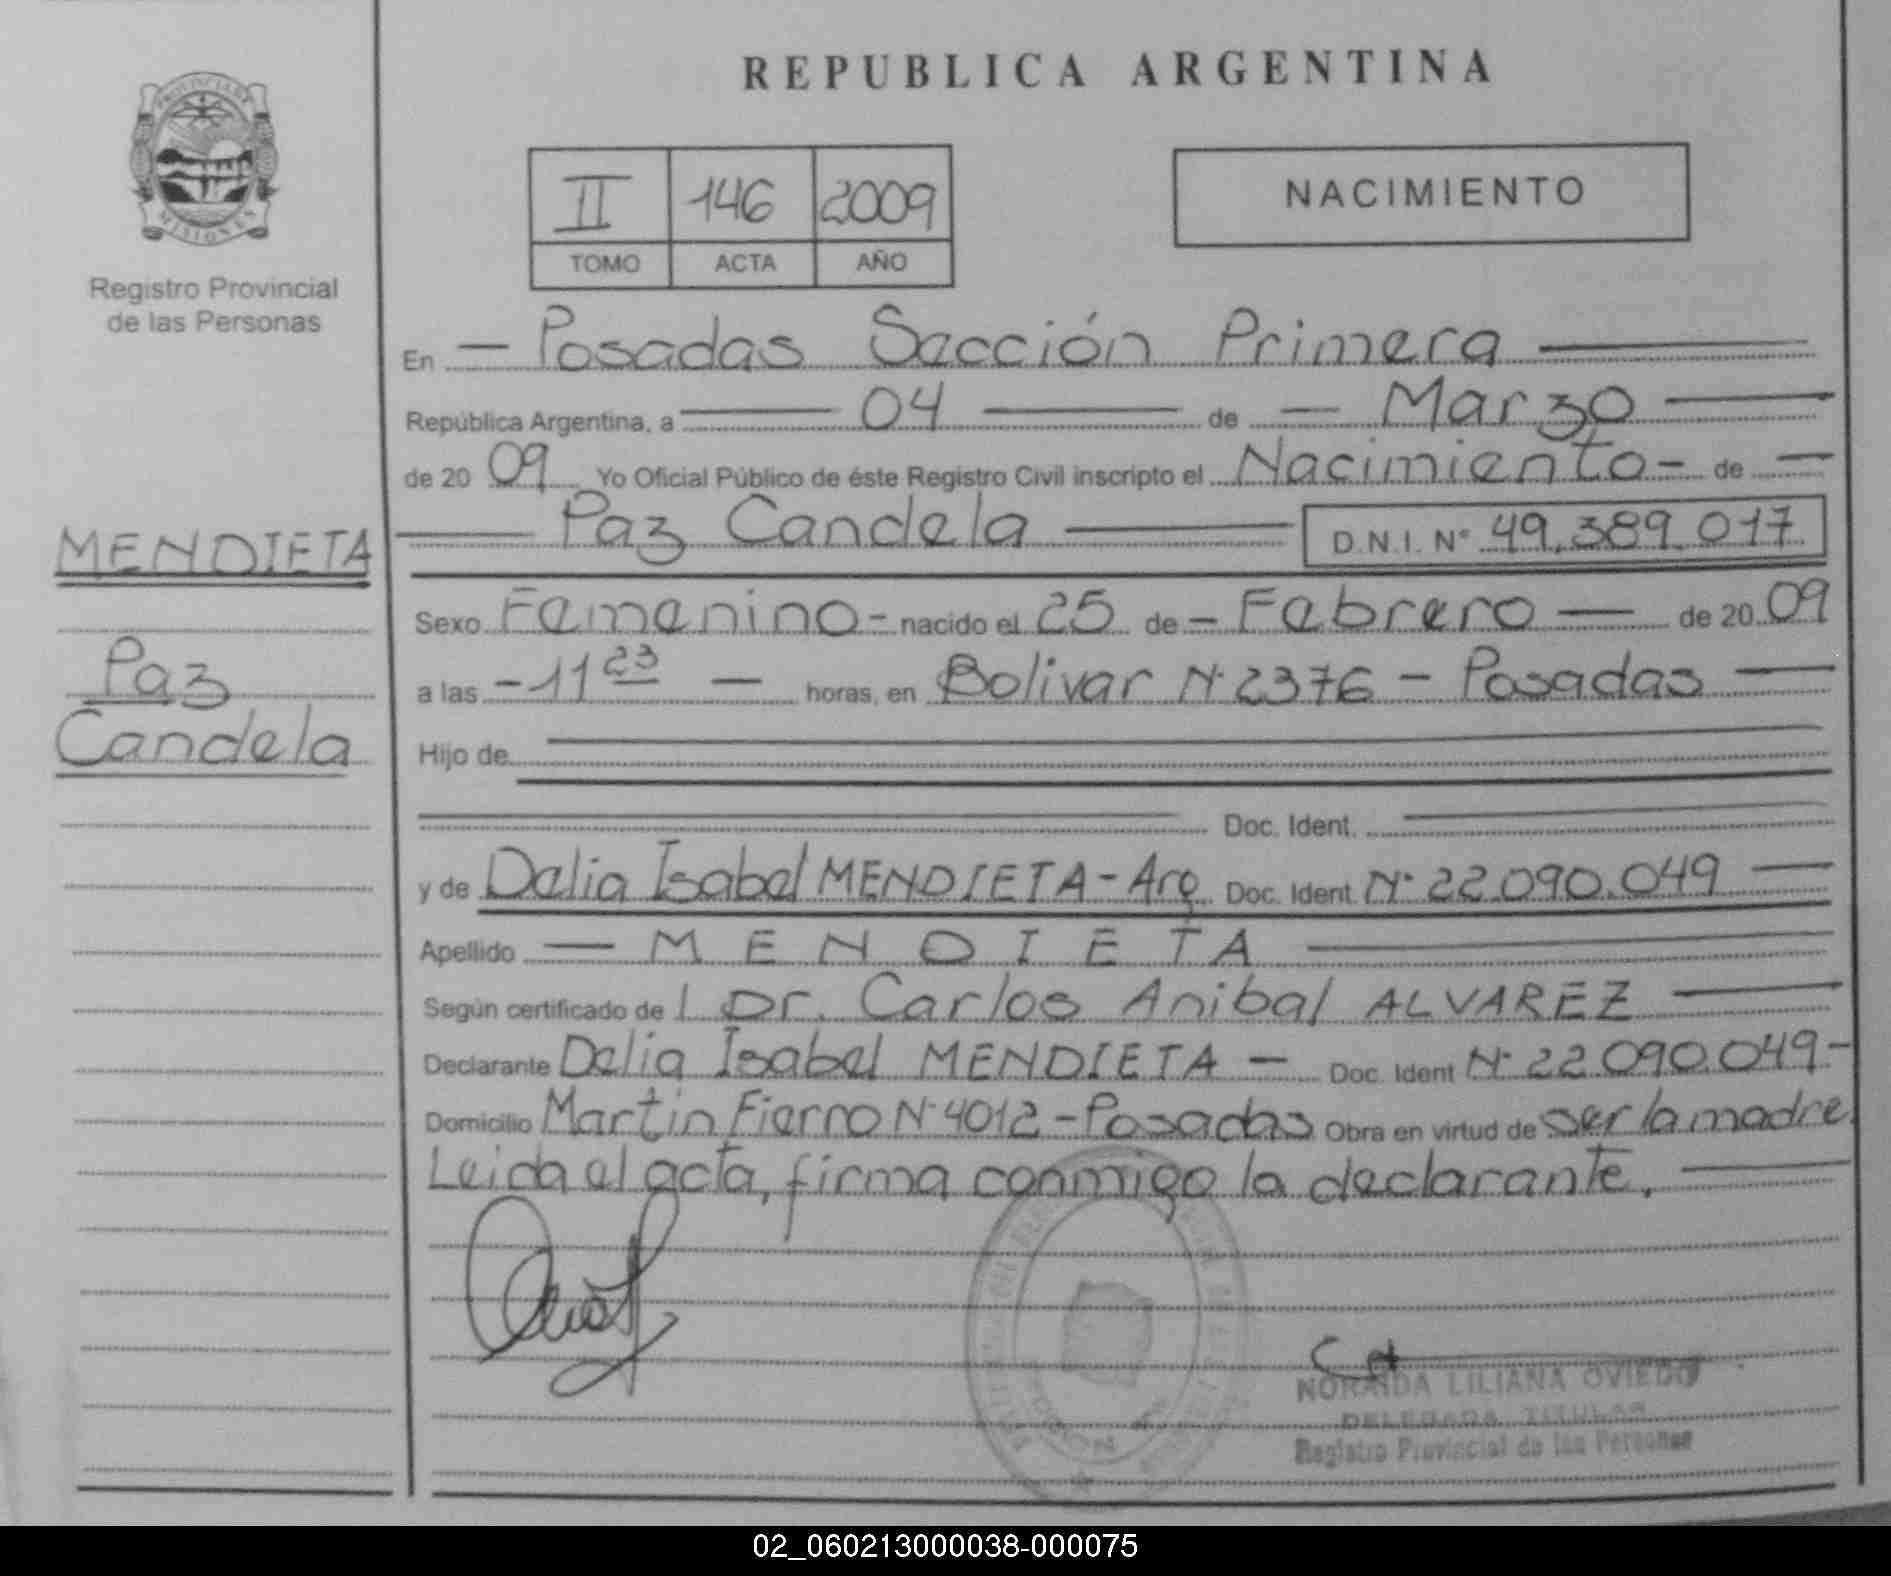 REPUBLICA ARGENTINA
PROVINCIA DE
MISIONES
Registro Provincial
de las Personas
II 146 2009
TOMO ACTA AÑO
NACIMIENTO
En Posadas Sección Primera
República Argentina, a 04 de Marzo
de 20 09 Yo Oficial Público de éste Registro Civil inscripto el Nacimiento de
Paz Candela D.N.I. Nº 49.389.017
MENDIETA
Paz
Candela
Sexo Femenino - nacido el 25 de Febrero de 20 09
a las 11 23 horas, en Bolivar Nº 2376 - Posadas
Hijo de
Doc. Ident.
y de Delia Isabel MENDIETA - Arg. Doc. Ident Nº 22.090.049
Apellido MENDIETA
Según certificado de l Dr. Carlos Anibal ALVAREZ
Declarante Delia Isabel MENDIETA Doc. Ident Nº 22.090.049
Domicilio Martin Fierro Nº 4012 - Posadas Obra en virtud de ser la madre.
Leida el acta, firma conmigo la declarante.
NORAIDA LILIANA OVIEDO
DELEGADA TITULAR
Registro Provincial de las Personas
02_060213000038-000075